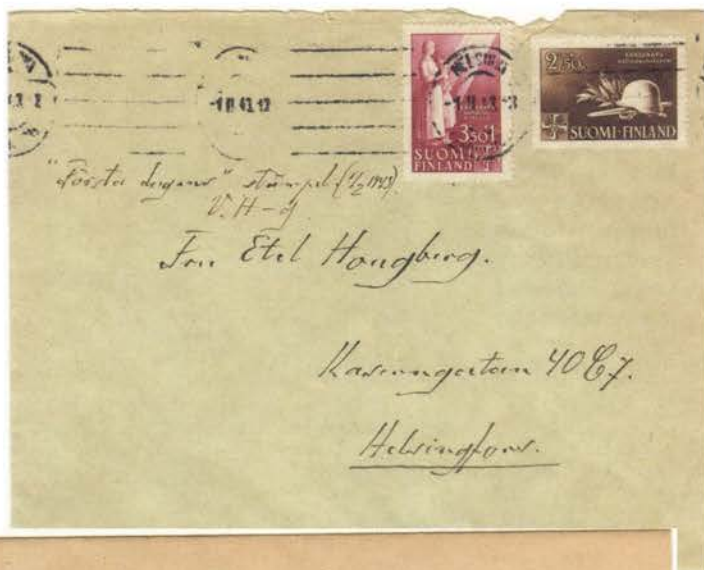 HELSINKI
-1.II.43.12
-1.II.43.-3
3.50+1
SUOMI
FINLAND
2,50
SUOMI-FINLAND
"Första dagens" stämpel (1/2 1943).
V. H-g
Fru Etel Hougberg.
Kaserngatan 40 C 7.
Helsingfors.